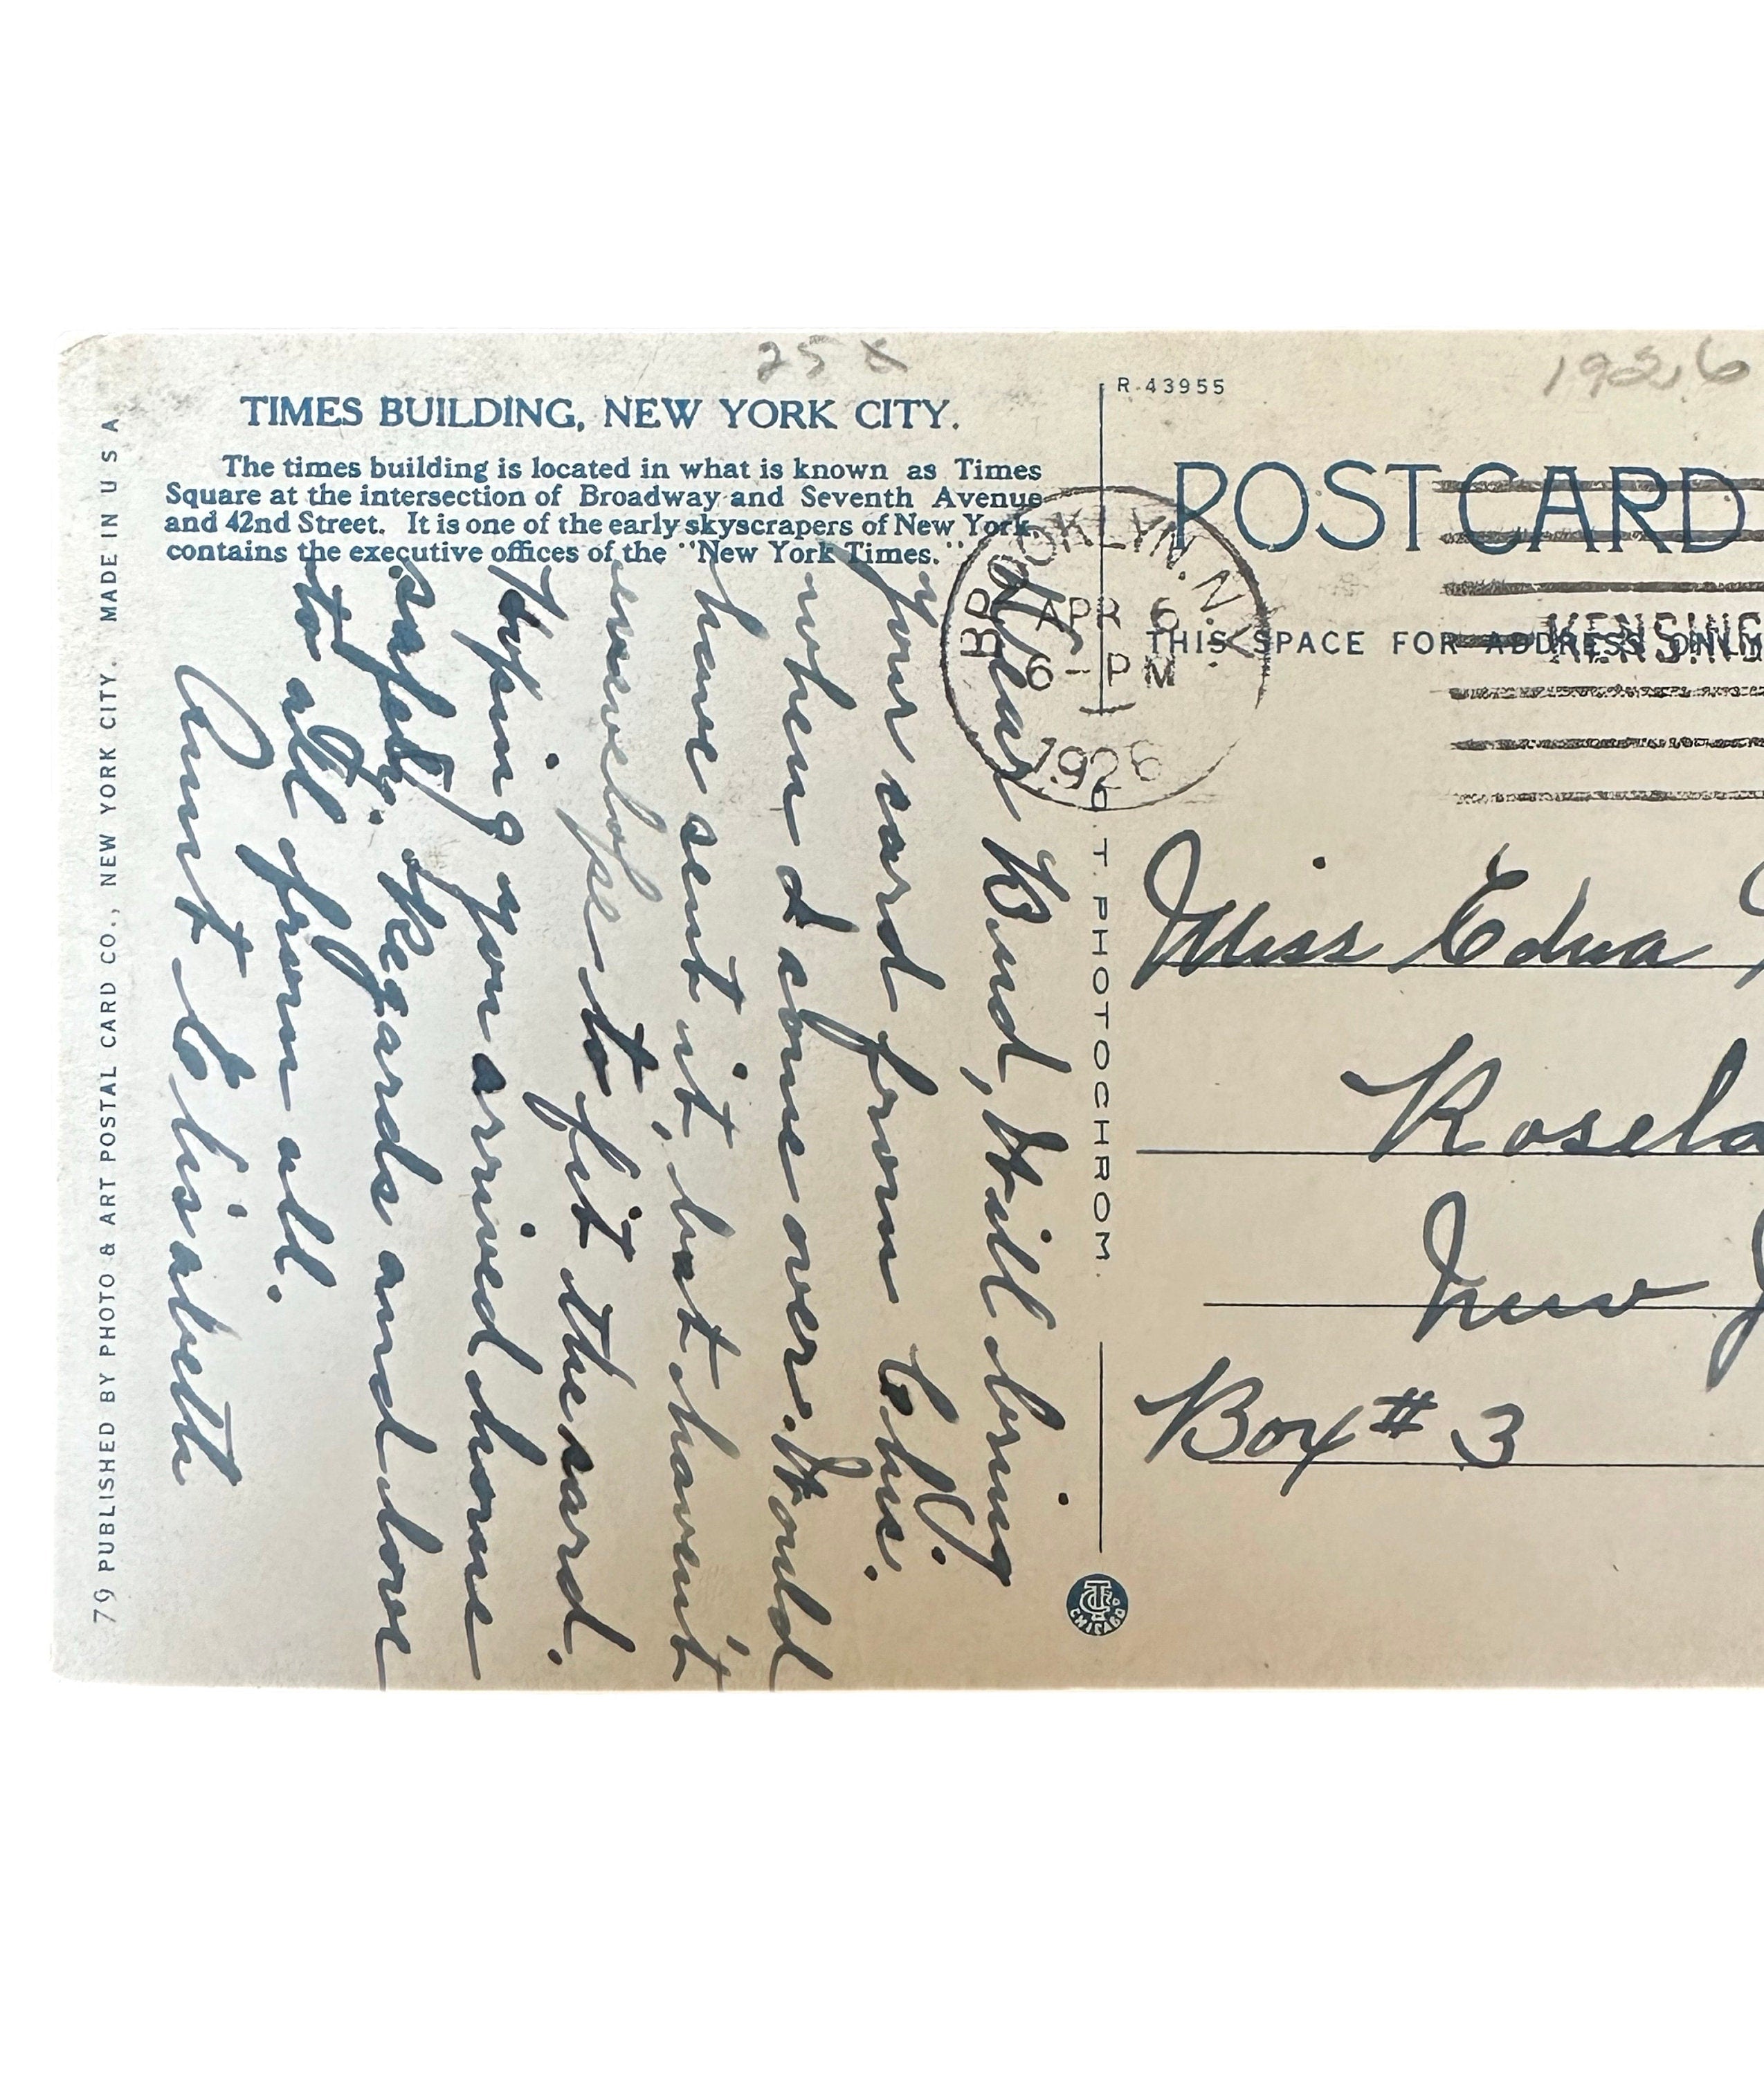 25¢
1926
R-43955
TIMES BUILDING, NEW YORK CITY.
The times building is located in what is known as Times
Square at the intersection of Broadway and Seventh Avenue
and 42nd Street. It is one of the early skyscrapers of New York,
contains the executive offices of the "New York Times."
POSTCARD
THIS SPACE FOR ADDRESS ONLY
BROOKLYN, N.Y.
APR 6
6-PM
1926
KENSING
Dear Bud, Will bring
your card from
when I come over. Would
have sent it, but haven't
envelope to fit the card.
Hoping you arrived home
safely. Regards and love
to all from all.
Aunt Elisabeth
Miss Edna
Rosela
New J
Box # 3
C. T. PHOTOCHROM.
CT CO CHICAGO
79 PUBLISHED BY PHOTO & ART POSTAL CARD CO., NEW YORK CITY. MADE IN U S A